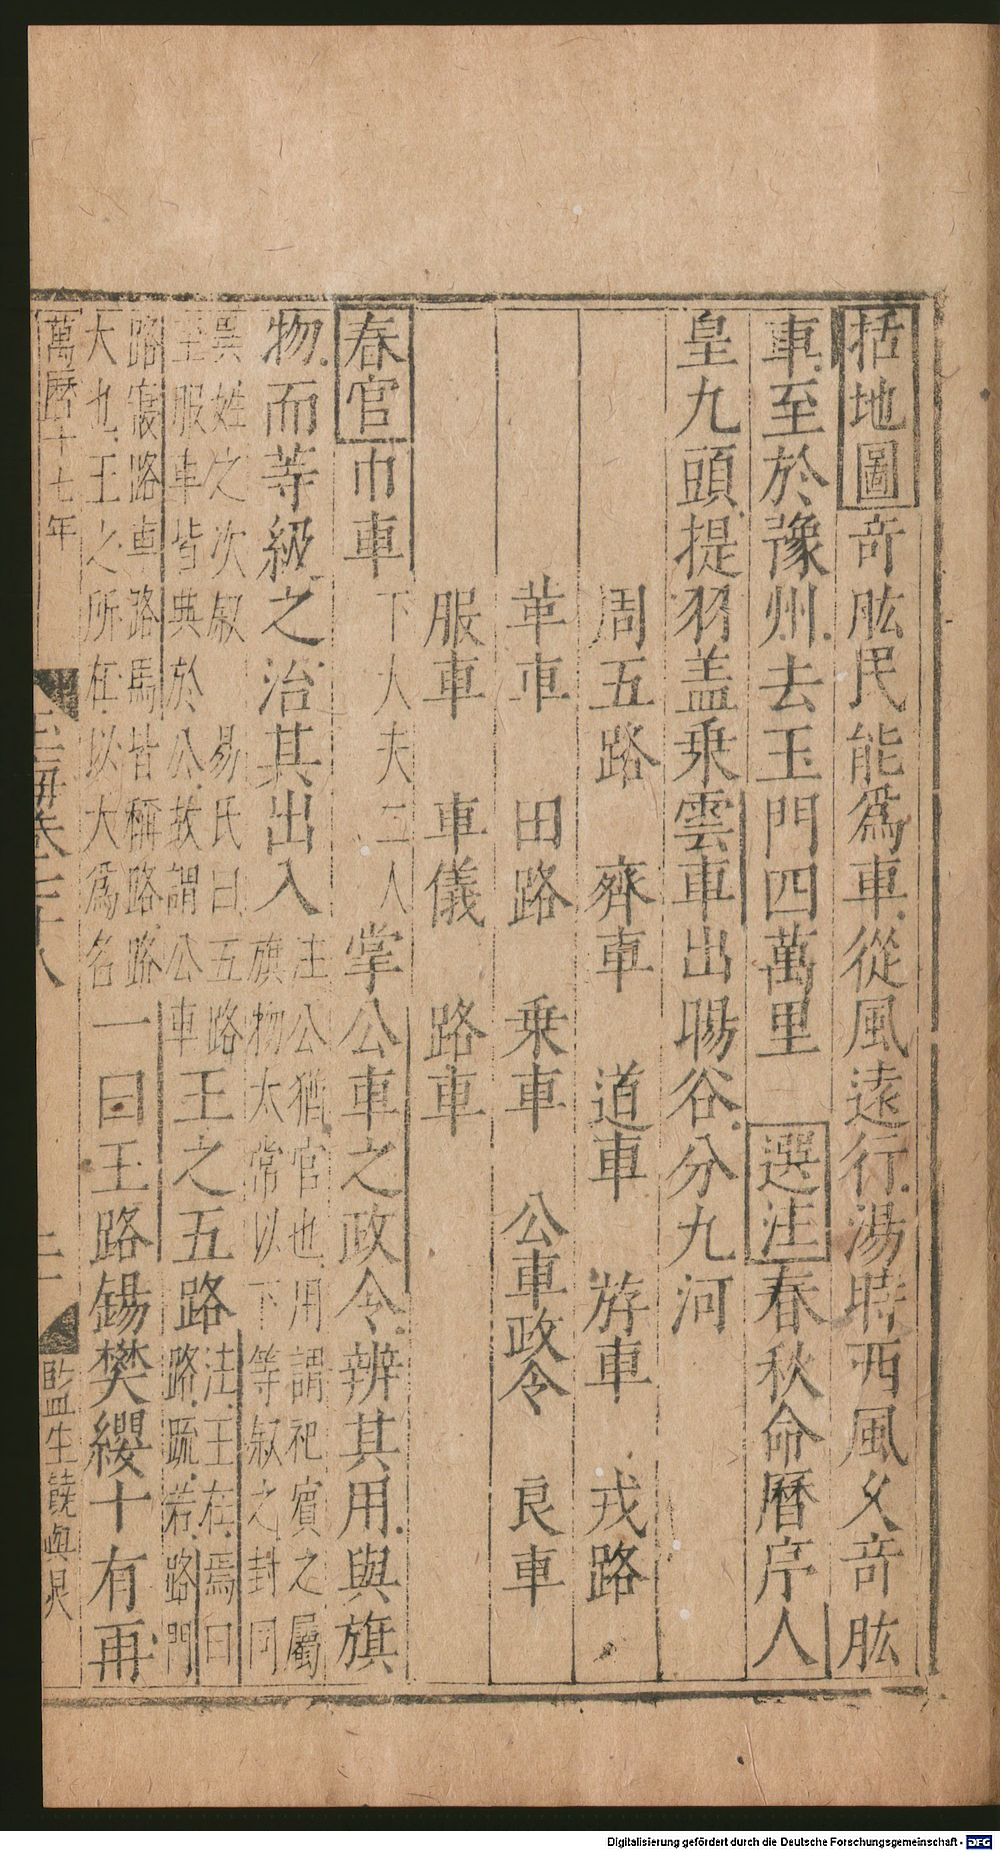 括地圖竒肱民能爲車從風逺行湯時西風久竒肱
車至於豫州去玉門四萬里 選注春秋命曆序人
皇九頭提羽盖乗雲車出暘谷分九河
周五路 齊車 道車 斿車 戎路
革車 田路 乗車 公車政令 良車
服車 車儀 路車
春官巾車下大夫二人掌公車之政令辨其用與旗
物而等級之治其出入
注公猶官也用謂祀賓之屬
旗物太常以下等叙之封同
異姓之次叙 易氏曰五路
至服車皆典於公故謂公車
王之五路
注王在焉曰
路䟽若路門
路寢路車路馬皆稱路路
大也王之所在以大爲名
一曰王路錫樊纓十有再
萬曆十七年
玉海卷七十八
二
監生饒與
Digitalisierung gefördert durch die Deutsche Forschungsgemeinschaft - DFG